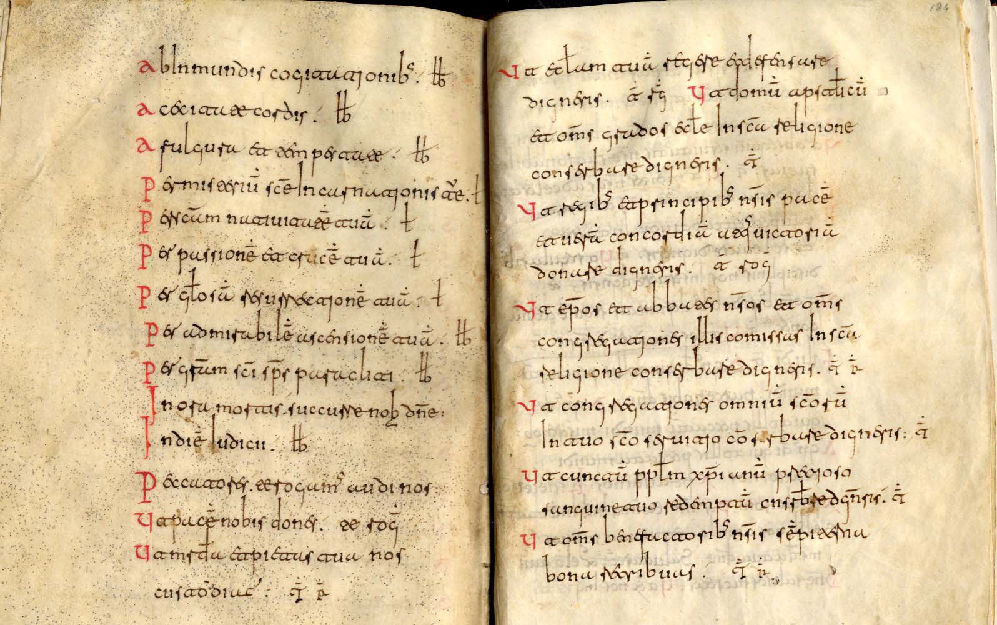 Ab Inmundis cogitationibꝰ. lb
A cecitate cordis. lb
A fulgura et tempestate. lb
Per misteriū scē Incarnationis tuē. l
Per scām nativitatē tuā. l
Per passionē et crucē tuā. l
Per gl̄osā resurrectionē tuā. l
Per admirabilē ascensionē tuā. lb
Per gr̄am sc̄i sp̄s paracliti. lb
In ora mortis succurre nob dn̄e.
In diē Iudicii. lb
Peccatores te rogam̄ audi nos
Ut pacē nobis dones. te roḡ
Ut mīsdā et pietas tua nos
custodiat. t̄ r̄
Ut ecl̄am tuā regere et defensare
digneris. t̄ rḡ Ut domū apstl̄icū
et om̄s gradus ecl̄e In scā religione
conserbare digneris. t̄
Ut regibꝰ et principibꝰ nr̄is pacē
et verā concordiā atqꝫ victoriā
donare digneris. t̄ roḡ
Ut ep̄os et abbates nr̄os et om̄s
congregationes illis comissas In scā
religione conserbare digneris. t̄ r̄
Ut congregationes omniū sc̄orū
In tuo sc̄o servitio conserbare digneris. t̄
Ut cunctū pp̄lm xp̄ianū pretioso
sanguine tuo redemptū conserbare dign̄ris. t̄
Ut om̄s benefactoribꝰ nr̄is sēpiterna
bona retribuas. t̄ r̄